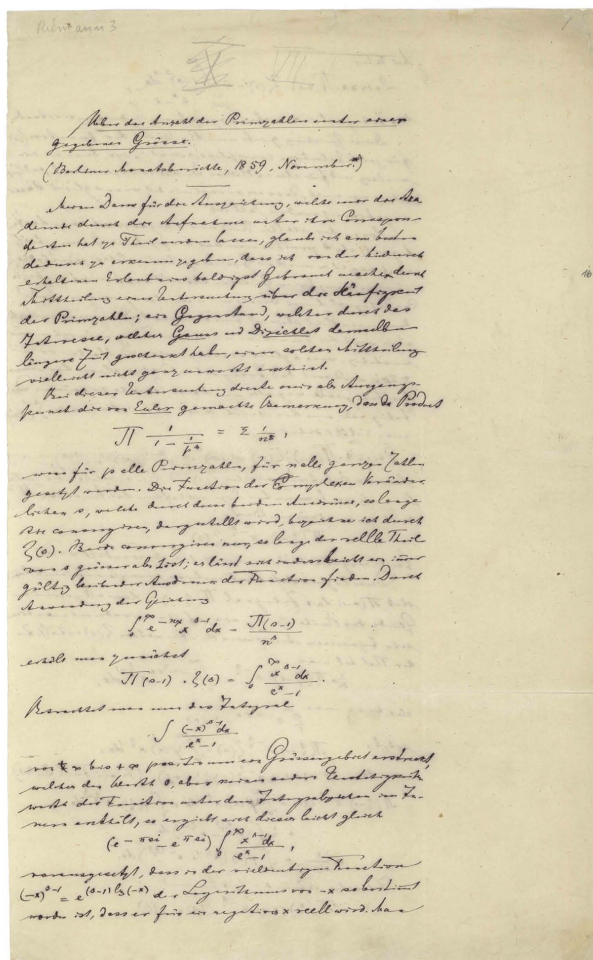 Riemann 3
1
VII
Ueber die Anzahl der Primzahlen unter einer
gegebenen Grösse.
(Berliner Monatsberichte, 1859, November.*)
Meinen Dank für die Auszeichnung, welche mir die Aka
demie durch die Aufnahme unter ihre Correspon
denten hat zu Theil werden lassen, glaube ich am besten
dadurch zu erkennen zu geben, dass ich von der hiedurch
erhaltenen Erlaubniss baldigst Gebrauch mache durch
Mittheilung einer Untersuchung über die Häufigkeit
der Primzahlen; ein Gegenstand, welcher durch das
Interesse, welches Gauss und Dirichlet demselben
längere Zeit geschenkt haben, einer solchen Mittheilung
vielleicht nicht ganz unwerth erscheint.
Bei dieser Untersuchung diente mir als Ausgangs-
punct die von Euler gemachte Bemerkung, dass das Product
∏ 1/(1 − 1/p^s) = Σ 1/n^s,
wenn für p alle Primzahlen, für n alle ganzen Zahlen
gesetzt werden. Die Function der complexen Veränder
lichen s, welche durch diese beiden Ausdrücke, so lange
sie convergiren, dargestellt wird, bezeichne ich durch
ζ(s). Beide convergiren nur, so lange der reelle Theil
von s grösser als 1 ist; es lässt sich indess leicht ein immer
gültig bleibender Ausdruck der Function finden. Durch
Anwendung der Gleichung
∫₀^∞ e^(−nx) x^(s−1) dx = ∏(s−1)/n^s
erhält man zunächst
∏(s−1) . ζ(s) = ∫₀^∞ x^(s−1) dx/(e^x − 1) .
Betrachtet man nun das Integral
∫ (−x)^(s−1) dx/(e^x − 1)
von +∞ bis +∞ positiv um ein Grössengebiet erstreckt,
welches den Werth 0, aber keinen andern Unstetigkeits
werth der Function unter dem Integralzeichen im In-
nern enthält, so ergiebt sich dieses leicht gleich
(e^(−πsi) − e^(πsi)) ∫₀^∞ x^(s−1) dx/(e^x − 1),
vorausgesetzt, dass in der vieldeutigen Function
(−x)^(s−1) = e^((s−1) lg(−x)) der Logarithmus von −x so bestimmt
worden ist, dass er für ein negatives x reell wird. Man